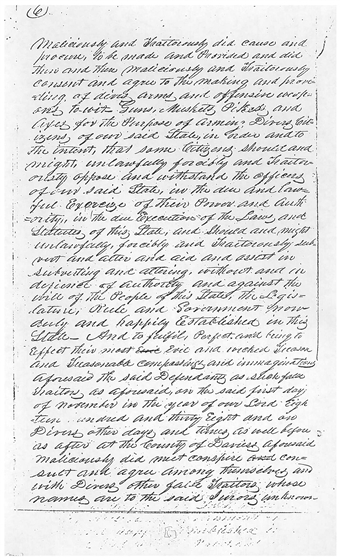 (6)
Maliciously and Traitorously did cause and
procure, to be made and Provised and did
then and there Maliciously and Traitorously
consent and agree to the making and provi-
ding, of divers arms, and offensive weap-
ons, to wit, Guns, Muskets, Pikes, and
Axes, for the Purpose of arming Divers Cit-
izens, of our said State, in order and to
the Intent, that some Citizens should and
might, unlawfully forcibly and Traitor-
ously oppose and withstand the officers
of our said State, in the due and law-
ful Exercise of their Power and Auth-
ority, in the due Execution of the Laws, and
Statutes, of this, State, and Should and might
unlawfully, forcibly and Traitorously sub-
vert and alter and aid and assist in
subverting and altering, without and in
defiance of authority and against the
will of the People of this State, the Legis-
lature, Rule and Government now
duly and happily Established in this
State— And to fulfil, Perfect, and bring to
Effect their most Evil and wicked Treason
and Treasonable compassings and immaginations
aforesaid the said Defendants as such false
Traitors, as aforesaid, on the said first day
of november in the year of our Lord Eigh-
teen hundred and thirty Eight and on
Divers other days, and times, as well before
as after at the County of Daviess, aforesaid
maliciously did meet conspire and con-
sult and agree among themselves, and
with Divers other false Traitors, whose
names are to the said Jurors, unknown